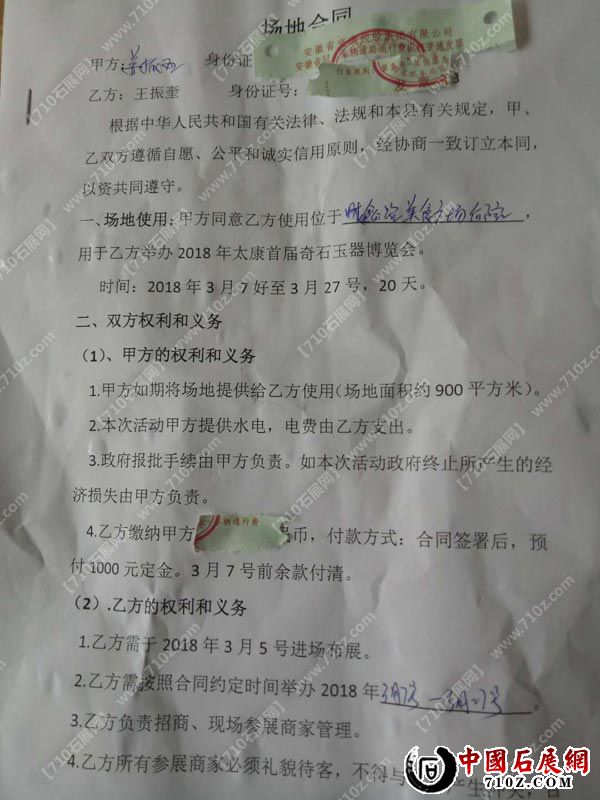 场地合同
安徽省
有限公司
安徽省
车辆道路通行费
普通发票
甲方：
身份证
乙方：王振奎 身份证号：
根据中华人民共和国有关法律、法规和本县有关规定，甲、
乙双方遵循自愿、公平和诚实信用原则，经协商一致订立本同，
以资共同遵守。
一、场地使用：甲方同意乙方使用位于 美食广场后院，
用于乙方举办 2018 年太康首届奇石玉器博览会。
时间：2018 年 3 月 7 好至 3 月 27 号，20 天。
二、双方权利和义务
（1）、甲方的权利和义务
1.甲方如期将场地提供给乙方使用（场地面积约 900 平方米）。
2.本次活动甲方提供水电，电费由乙方支出。
3.政府报批手续由甲方负责。如本次活动政府终止所产生的经
济损失由甲方负责。
4.乙方缴纳甲方 车辆通行费 币，付款方式：合同签署后，预
付 1000 元定金。3 月 7 号前余款付清。
（2）.乙方的权利和义务
1.乙方需于 2018 年 3 月 5 号进场布展。
2.乙方需按照合同约定时间举办 2018 年3月7号—3月27号。
3.乙方负责招商、现场参展商家管理。
4.乙方所有参展商家必须礼貌待客，不得与
中國石展網
710Z.COM
【710石展网】www.710z.com